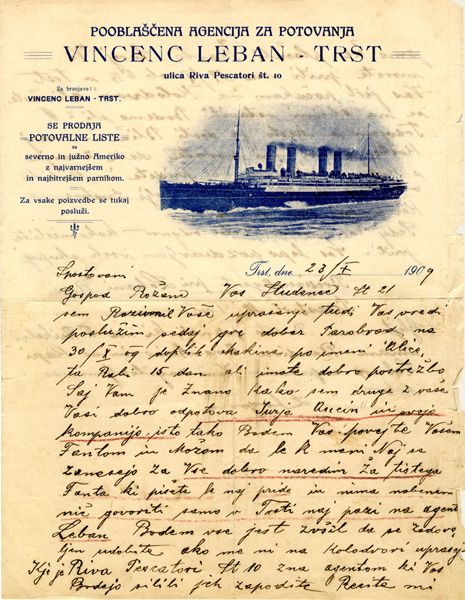 POOBLAŠČENA AGENCIJA ZA POTOVANJA
VINCENC LEBAN - TRST
ulica Riva Pescatori št. 10
Za brzojave:
VINCENC LEBAN - TRST.
SE PRODAJA
POTOVALNE LISTE
za
severno in južno Ameriko
z najvarnejšem
in najbitrejšem parnikom.
Za vsake poizvedbe se tukaj
posluži.
Trst, dne 23/X 1909
Spostovani
Gospod Božam Vas Studenec St 21
sem Razumil Vaše uprašanje tudi Vas uredi
poslužim sedaj gre dober Parobrod na
30/X og
ta Rabi 15 dan ali imate dobro postrežbo
Saj Vam je Znano Kako sem druge z vaše
Vasi dobro odpotova Jurja in svojo
Kompanijo, isto tako Bodem Vas povejte Vašem
Fantom in Možom da le k meni Naj se
Zanesejo Za Vse dobro naredim Za tistega
Fanta ki pišete le naj pride in nima nobenem
nič govoriti samo v Trsti naj pazi na agente
Leban Bodem vse jest zvšil da se zadovo
ljen udobite ako me ni na Kolodvori upraša
Kje je Riva Pescatori St 10 zna agentom ki Vas
Bodejo silili jeh zapodite Recite mi